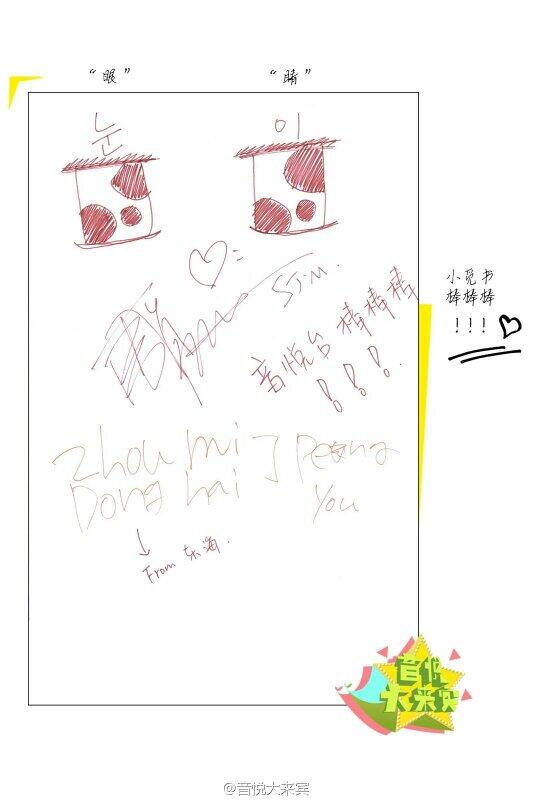 “眼” “睛”
눈 이
SJ.M.
音悦台棒棒棒
！！！
小觅书
棒棒棒
！！！
Zhou mi
Dong hai
peng
You
From 东海.
音悦
大来宾
@音悦大来宾